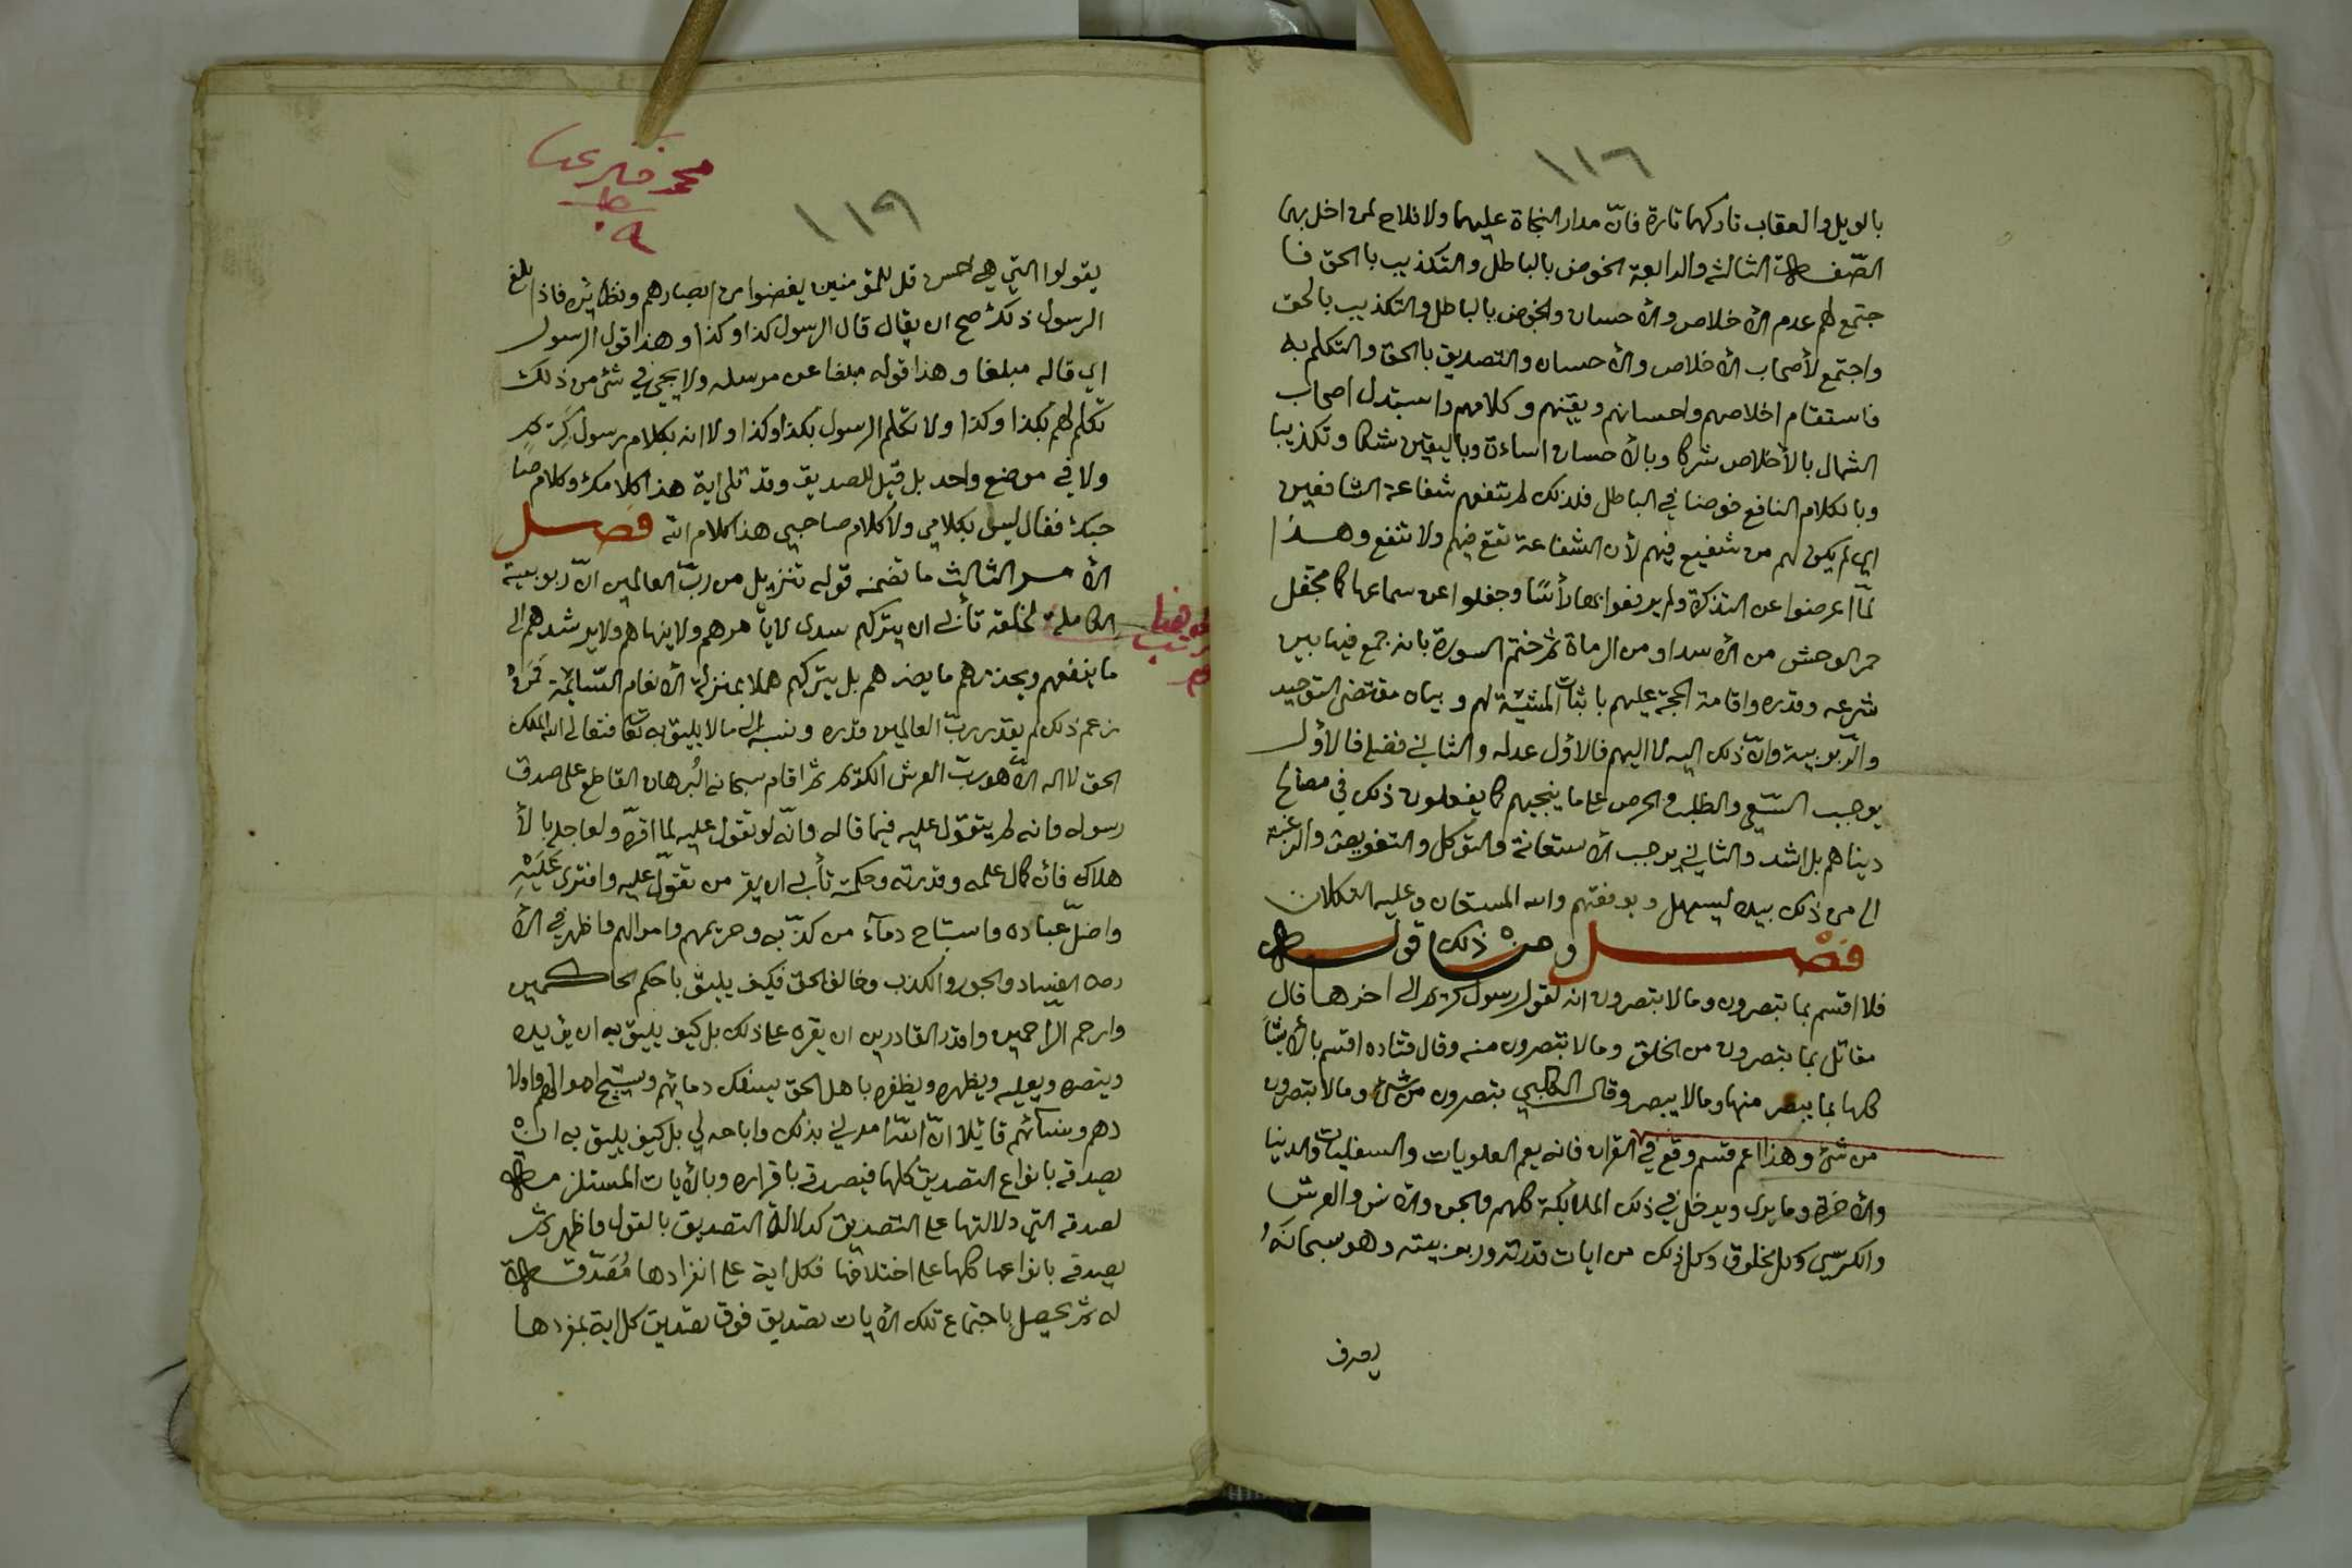 ١١٦
بالويل والعقاب تاركهما تارة فانّ مدار النجاة عليهما ولا فلاح لمن اخل بهما
الصّفة الثالثه والرابعة الخوض بالباطل والتكذيب بالحق فا
جتمع لهم عدم الأخلاص والأحسان والخوض بالباطل والتكذيب بالحق
واجتمع لأصحاب الأخلاص والأحسان والتصديق بالحق والتكلم به
فاستقام اخلاصهم واحسانهم ويقينهم وكلامهم واستبدل اصحاب
الشمال بالأخلاص شركا وبالأحسان اساءة وباليقين شكا وتكذيبا
وبالكلام النافع خوضا في الباطل فلذلك لم تنفعهم شفاعة الشافعين
اي لم يكن لهم من شفيع فيهم لأن الشفاعة تقع فيهم ولا تنفع وهذا
لمّا اعرضوا عن التذكرة ولم يرفعوا بها رأسًا وجفلوا عن سماعها كما تجفل
حمر الوحش من الأسد او من الرماة ثم ختم السورة بانه جمع فيها بين
شرعه وقدره واقامة الحجة عليهم باثبات المشيّة لهم وبيان مقتضى التوحيد
والرّبوبية وانّ ذلك اليه لا اليهم فالاول عدله والثاني فضله فالأول
يوجب السّعي والطلب والحرص على ما ينجيهم كما يفعلون ذلك في مصالح
دنياهم بل اشد والثاني يوجب الأستعانة والتوكل والتفويض والرغبة
الى من ذلك بيده ليسهله ويوفقهم والله المستعان وعليه التكلان
فصل ومن ذلك قوله
فلا اقسم بما تبصرون وما لا تبصرون انه لقول رسول كريم الى اخرها قال
مقاتل بما تبصرون من الخلق وما لا تبصرون منه وقال قتاده اقسم بالأشيآ
كلها بما يبصر منها وما لا يبصر وقال الكلبي تبصرون من شئ وما لا تبصرون
من شئ وهذا اعم قسم وقع في القران فانه يعم العلويات والسفليات والدنيا
والأخرة وما يرى ويدخل في ذلك الملائكة كلهم والجن والانس والعرش
والكرسي وكل مخلوق وكل ذلك من ايات قدرته وربوبيته وهو سبحانه
يصرف
محمد
١١٩
يقولوا التي هي احسن قل للمؤمنين يغضوا من ابصارهم ونظائره فاذا بلغ
الرسول ذلك صح ان يقال قال الرسول كذا وكذا وهذا قول الرسول
اي قاله مبلغا وهذا قوله مبلغا عن مرسله ولا يجئ في شئ من ذلك
تكلم لهم بكذا وكذا ولا تكلم الرسول بكذا وكذا ولا انه بكلام رسول كريم
ولا في موضع واحد بل قيل للصديق وقد تلى اية هذا كلامك وكلام صا
حبك فقال ليس بكلامي ولا كلام صاحبي هذا كلام الله فصل
الأمر الثالث ما تضمنه قوله تنزيل من ربّ العالمين انّ ربوبيته
الكاملة لخلقه تأبى ان يتركهم سدى لا يأمرهم ولا ينهاهم ولا يرشدهم الى
ما ينفعهم ويحذرهم ما يضرهم بل يتركهم هملا بمنزلة الأنعام السّائمة فمن
زعم ذلك لم يقدر ربّ العالمين قدره ونسبه الى ما لا يليق به تعالى فتعالى الله الملك
الحق لا اله الّا هو ربّ العرش الكريم ثم اقام سبحانه البُرهان القاطع على صدق
رسوله وانه لم يتقوّل عليه فيما قاله وانّه لو تقول عليه لما اقرّه ولعاجله بالأ
هلاك فان كمال علمه وقدرته وحكمته تأبى ان يقر من تقوّل عليه وافترى عَلَيْهِ
واضلّ عباده واستباح دمآء من كذّبه وحريمهم واموالهم واظهر في الأ
رض الفساد والجور والكذب وخالف الحق فكيف يليق باحكم الحاكمين
وارحم الرّاحمين واقدر القادرين ان يقره على ذلك بل كيف يليق به ان يؤيده
وينصره ويعليه ويظهره ويظفره باهل الحق يسفك دمائهم ويستبيح اموالهم واولا
دهم ونسائهم قائلا انّ اللّه امرني بذلك واباحه لي بل كيف يليق به ان
يصدقه بانواع التصديق كلها فيصدقه باقراره وبالأيات المستلزمة
لصدقه التي دلالتها على التصديق كدلالة التصديق بالقول واظهر ثم
يصدقه بانواعها كلها على اختلافها فكل اية على انفرادها مُصَدّقة
له ثم يحصل باجتماع تلك الأيات تصديق فوق تصديق كل اية بمفردها